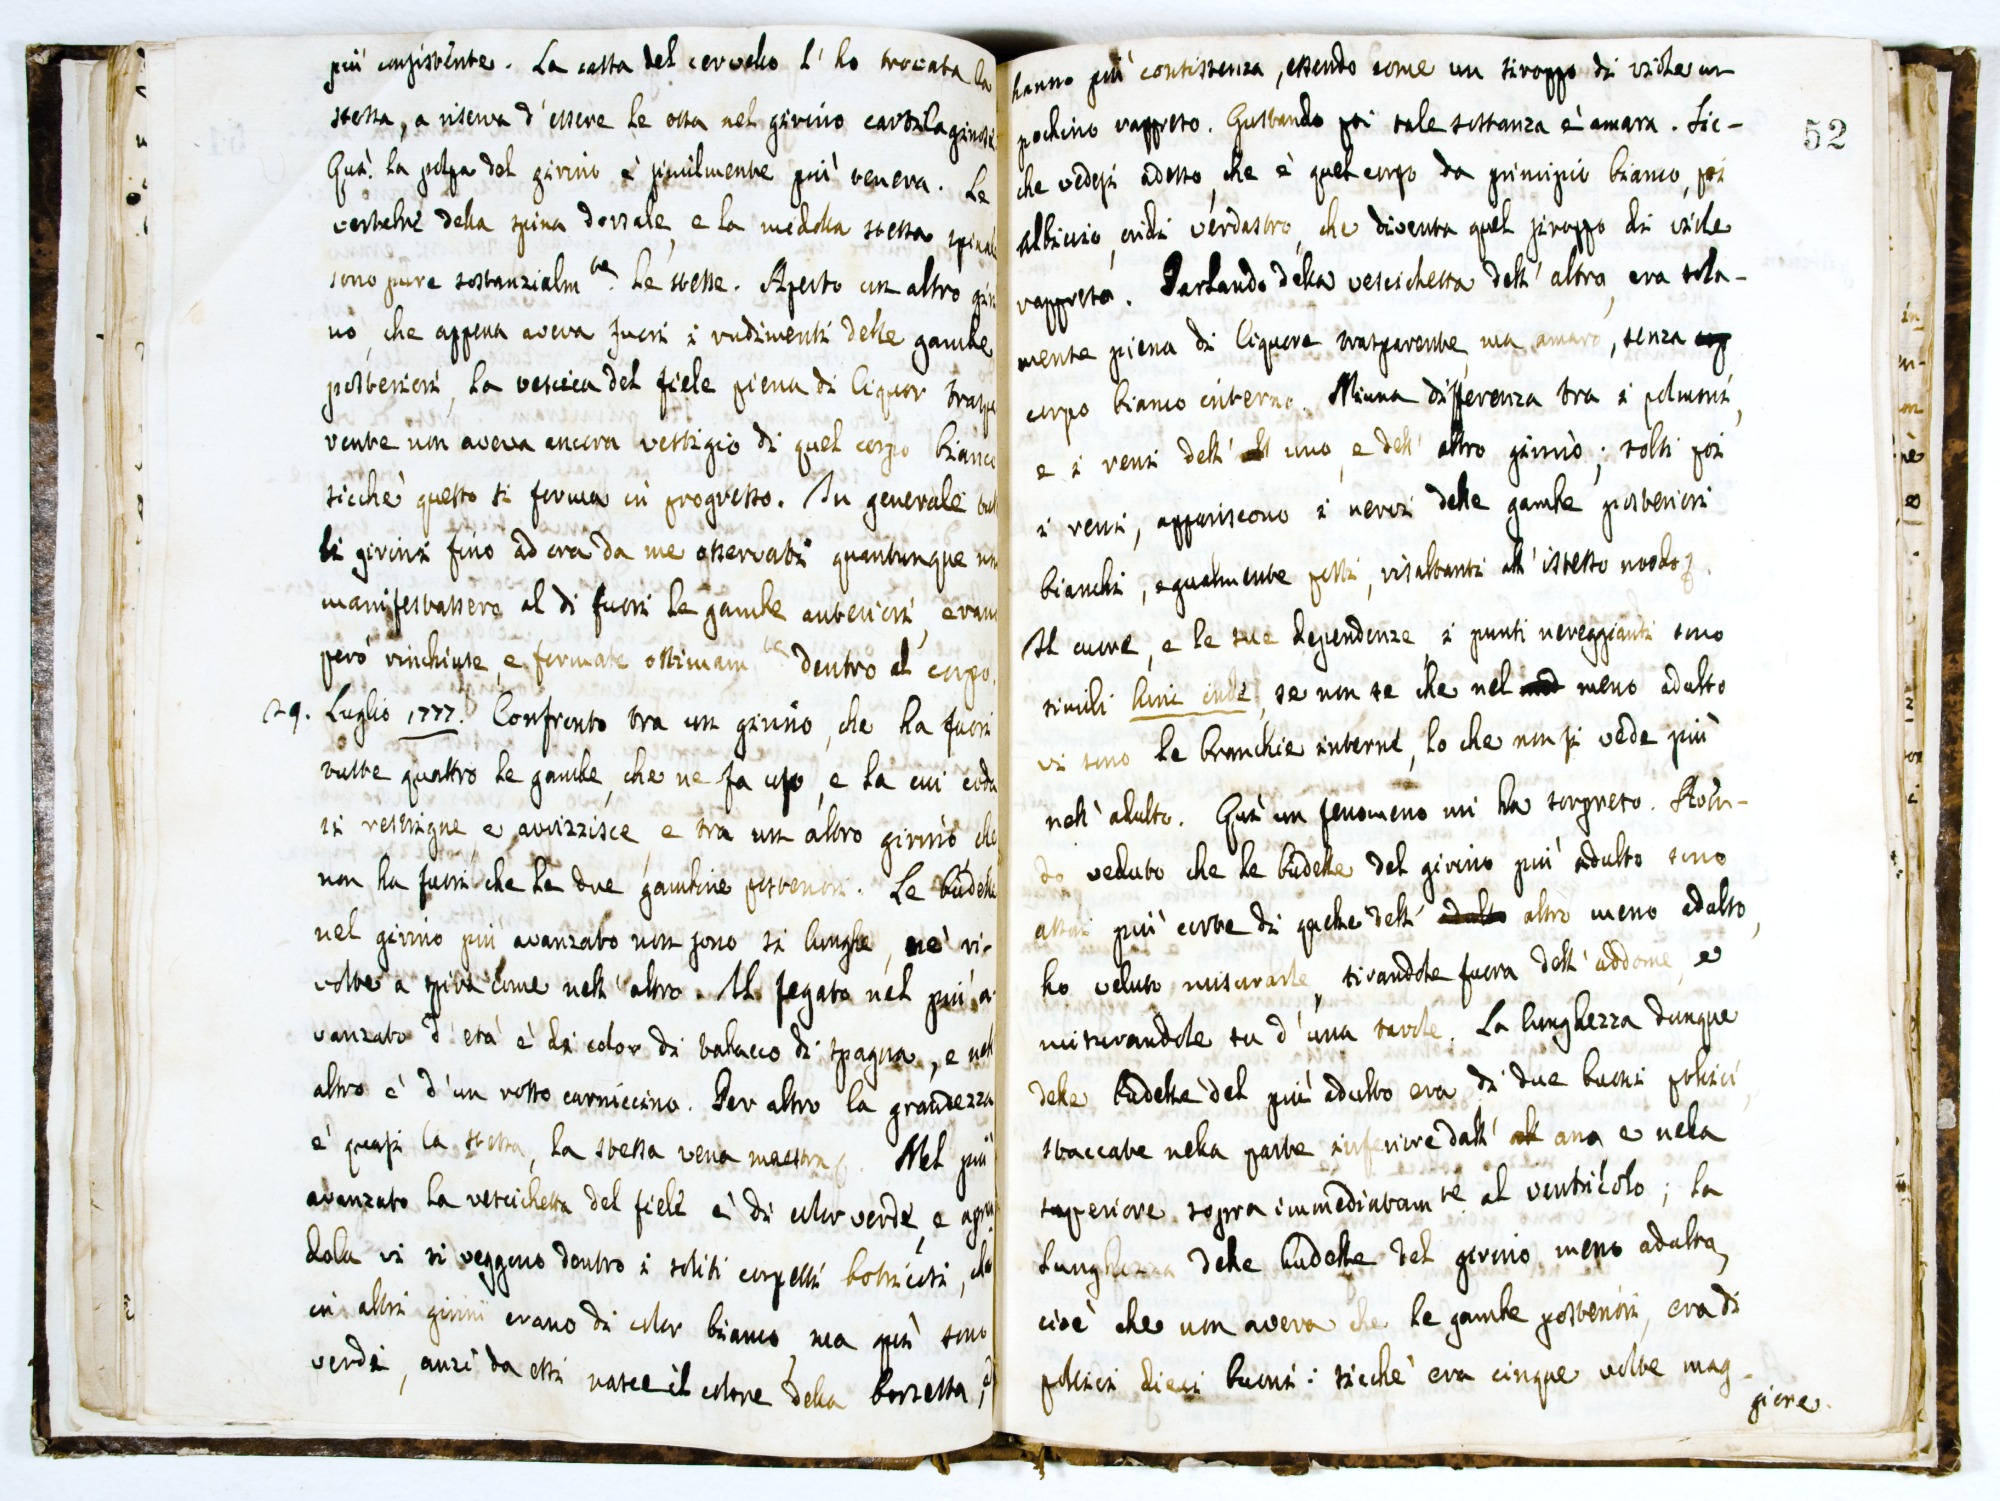 più consistente. La cassa del cervello l'ho trovata la
stessa, a riserva d'essere le ossa nel girino cartilaginosi
Quà. La polpa del girino è similmente più tenera. Le
vertebre della spina dorsale, e la midolla stessa spinale
sono pure sostanzialm.te le stesse. Aperto un altro giri
no, che appena aveva fuori i rudimenti delle gambe
posteriori, la vescica del fiele piena di liquor traspa
rente non aveva ancora vestigio di quel corpo bianco
sicchè questo si forma in progresso. In generale tut
ti i girini fino ad ora da me osservati quantunque non
manifestassero al di fuori le gambe anteriori, erano
però rinchiuse, e formate ottimam.te dentro al corpo.
29. Luglio 1777. Confronto tra un girino, che ha fuori
tutte quattro le gambe, che ne fa uso, e la cui coda
si restrigne e avvizzisce, e tra un altro girino, che
non ha fuori che le due gambine posteriori. Le budelle
nel girino più avanzato non sono sì lunghe, nè ri-
volte a spira come nell'altro. Il fegato nel più a-
vanzato d'età è di color di tabacco di spagna, e nell'
altro è d'un rosso carniccino. Per altro la grandezza
è quasi la stessa, la stessa vena maestra. Nel più
avanzato la vescichetta del fiele è di color verde, e apren
dola vi si veggono dentro i soliti corpetti botriciti, che
in altri girini erano di color bianco, ma quì sono
verdi, anzi da essi nasce il colore della borsetta, ed
hanno più consistenza, essendo come un siroppo di viole un
pochino rappreso. Gustando poi tale sostanza è amara. Sic-
52
che vedesi adesso, che è quel corpo da principio bianco, poi
albiccio, indi verdastro, che diventa quel siroppo di viole
rappreso. Parlando della vescichetta dell'altro, era sola-
mente piena di liquore trasparente, ma amaro, senza
corpo bianco interno. Niuna differenza tra i polmoni,
e i reni dell' uno, e dell' altro girino; tolti poi
i reni, appariscono i nervi delle gambe posteriori
bianchi, egualmente grossi, risaltanti all'istesso modo.
Il cuore, e le sue dependenze, i punti nereggianti sono
simili hinc inde, se non se che nel meno adulto
vi sono le branchie interne, lo che non si vede più
nell'adulto. Quì un fenomeno mi ha sorpreso. Aven-
do veduto che le budelle del girino più adulto sono
assai più corte di quelle dell' altro meno adulto,
ho voluto misurarle, tirandole fuora dell'addome, e
misurandole su d'una tavola. La lunghezza dunque
delle budelle del più adulto era di due buoni pollici,
staccate nella parte inferiore dall' ano, e nella
superiore sopra immediatam.te al ventricolo; la
lunghezza delle budelle del girino meno adulto,
cioè che non aveva che le gambe posteriori, era di
pollici dieci buoni: sicchè era cinque volte mag-
giore.